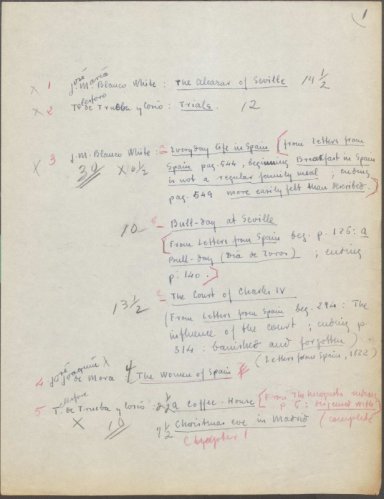 1
x 1 José María Blanco White : The Alcazar of Seville 14 1/2
x 2 Telesforo T. de Trueba y Cosío : Trials. 12
x 3 J.M. Blanco White : Everyday life in Spain [from Letters from
30 x 6 1/2 Spain pag. 544, beginning Breakfast in Spain
is not a regular family meal ; ending
pag. 549 more easily felt than described.
10 Bull-day at Seville
[From Letters from Spain beg. p. 126: a
Bull-day (Día de Toros) ; ending
p. 140.]
13 1/2 The Court of Charles IV
(From Letters from Spain beg. 294: The
influence of the court ; ending p.
314: banished and forgotten)
(Letters from Spain, 1822)
4 José Joaquín x de Mora 4 [The Women of Spain
5 Telesforo T. de Trueba y Cosío : a Coffee-House [From The
x 10 7 1/2 Christmas eve in Madrid (complete)
Chapter 1